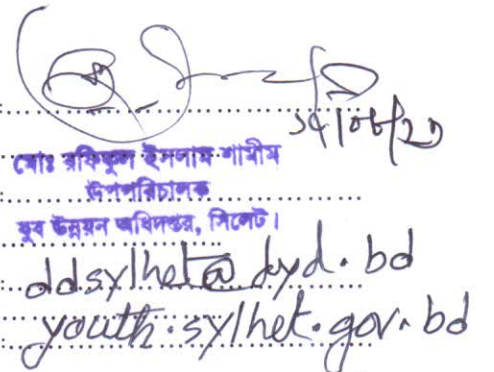 ১৫/০৮/২৩
মোঃ রফিকুল ইসলাম শামীম
উপপরিচালক
যুব উন্নয়ন অধিদপ্তর, সিলেট।
ddsylhet@dyd.bd
youth.sylhet.gov.bd